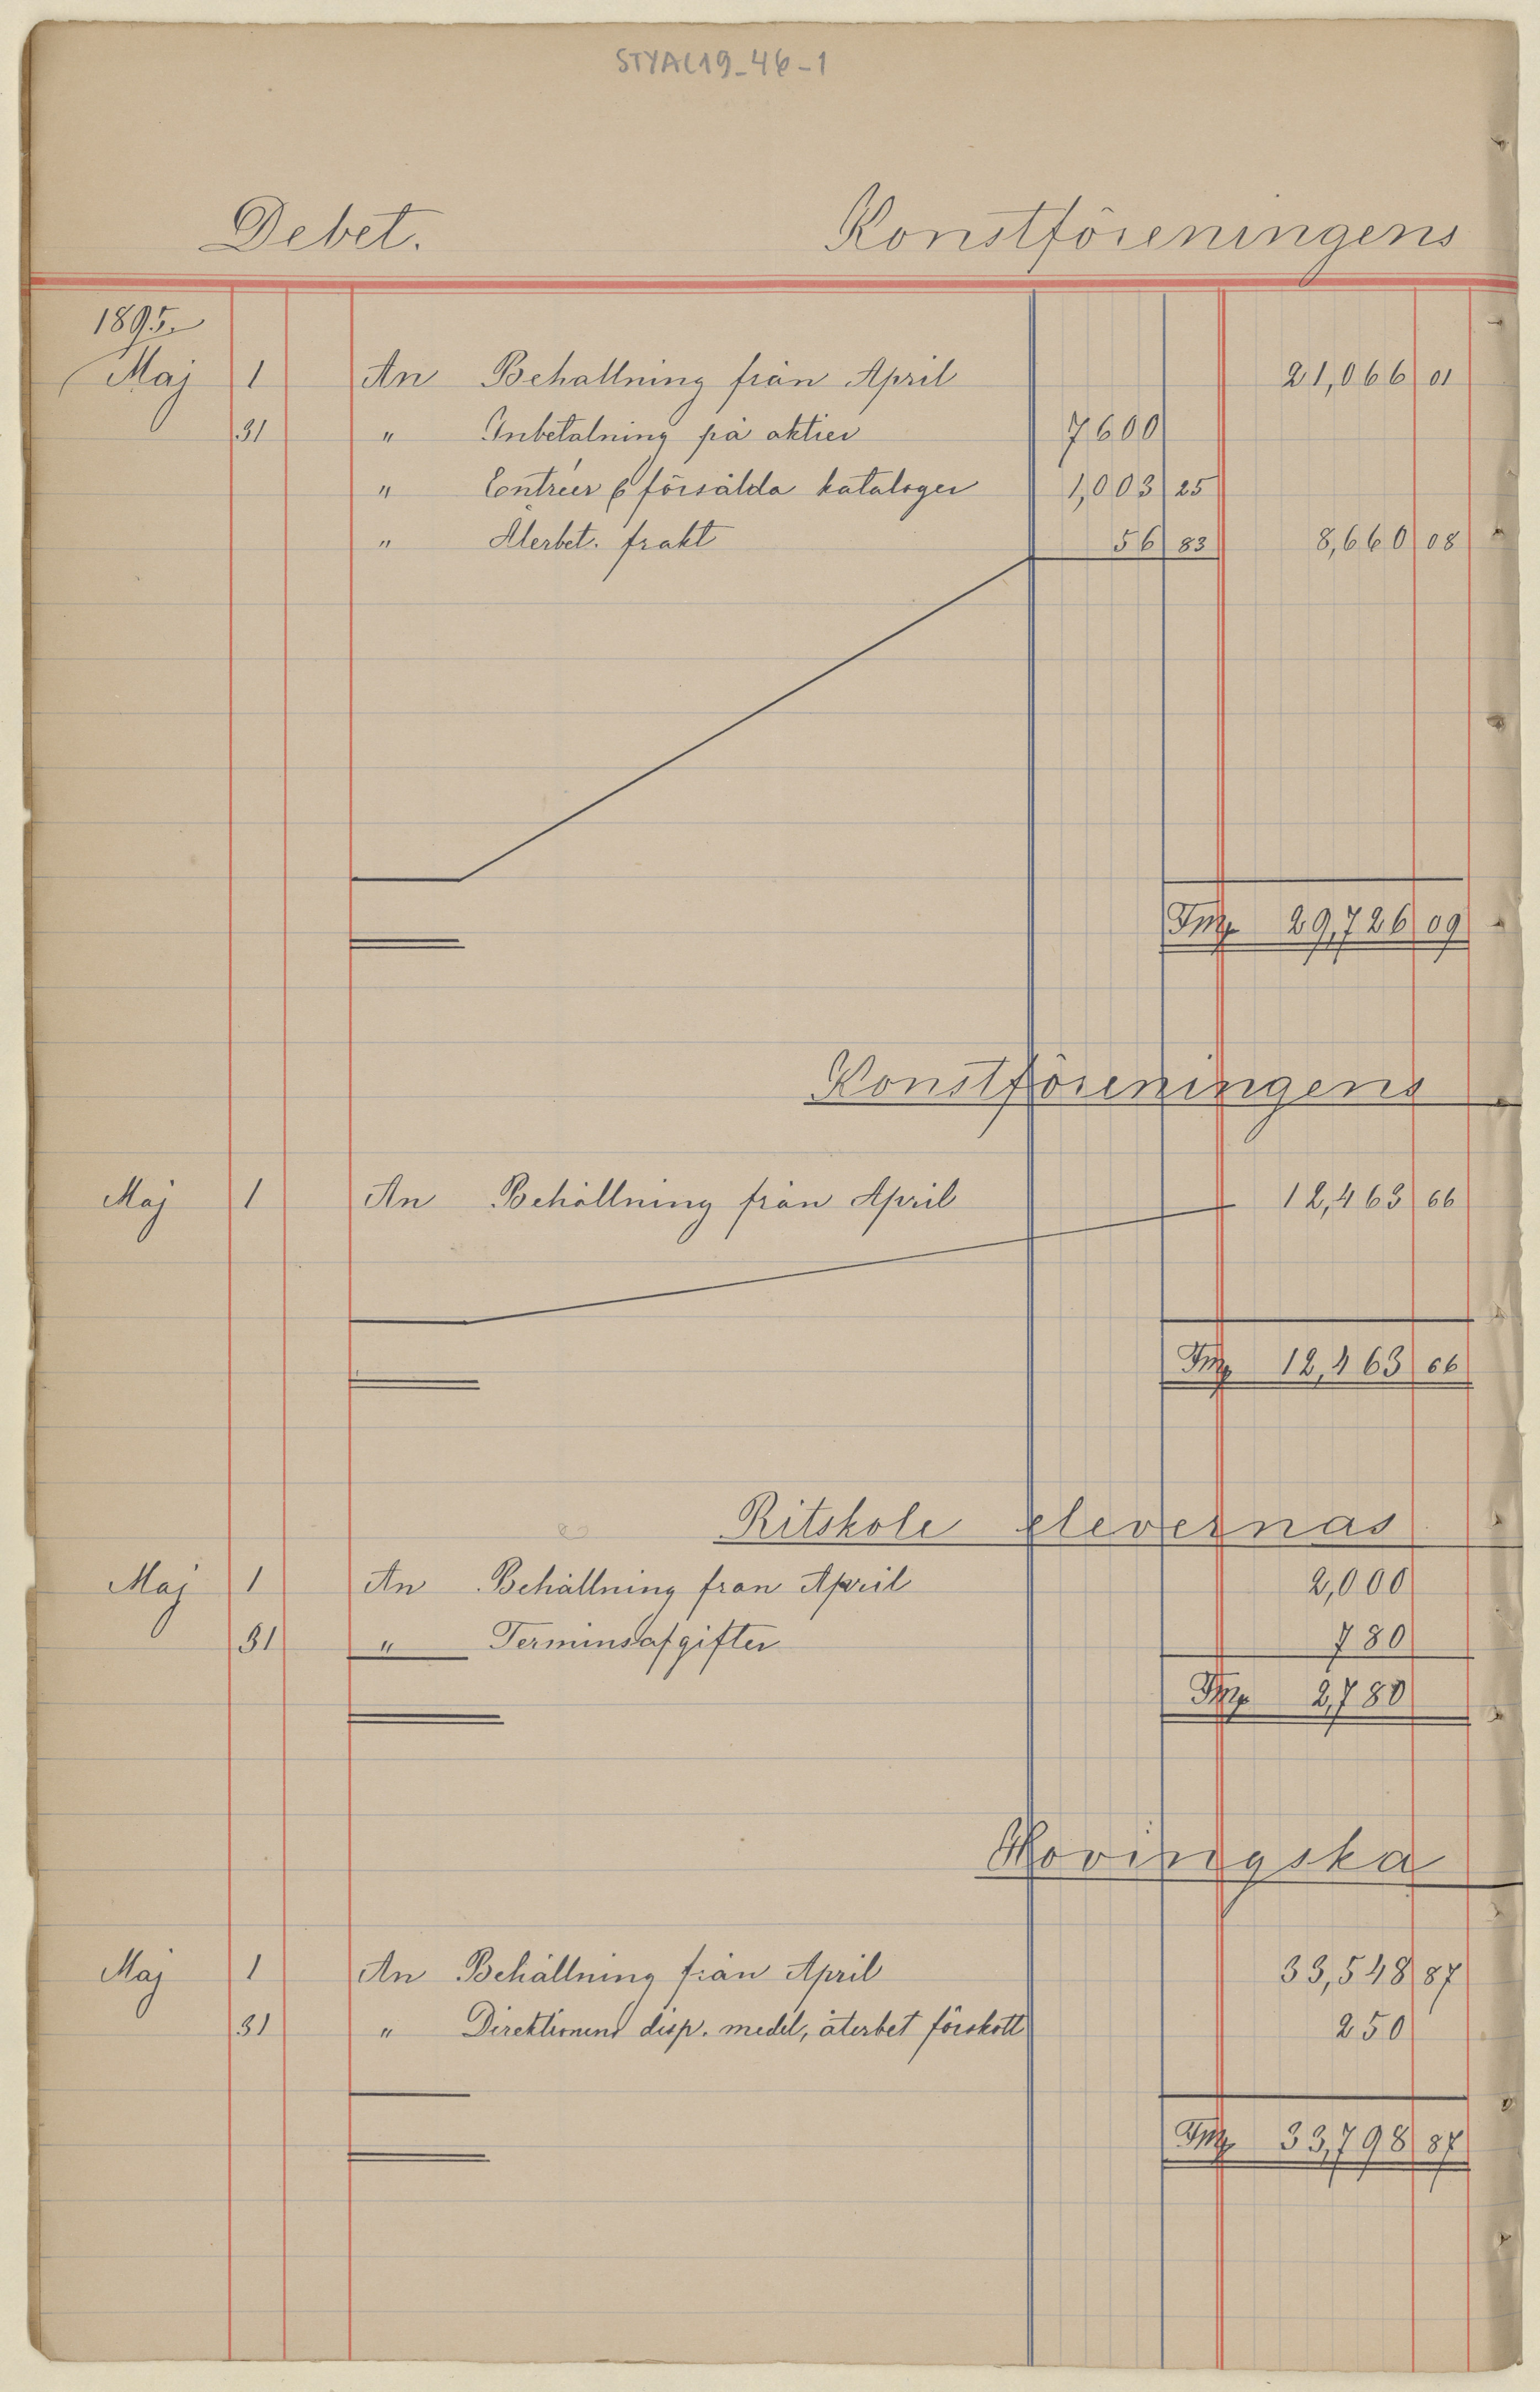 STYAL19_46-1
Debet. Konstföreningens
1895.
Maj 1 An Behållning från April 21,066 01
31 " Inbetalning på aktier 7600
" Entréer & försålda kataloger 1,003 25
" Återbet. frakt 56 83 8,660 08
Fmk 29,726 09
Konstföreningens
Maj 1 An Behållning från April 12,463 66
Fmk 12,463 66
Ritskole elevernas
Maj 1 An Behållning från April 2,000
31 " Terminsafgifter 780
Fmk 2,780
Hovingska
Maj 1 An Behållning från April 33,548 87
31 " Direktionens disp. medel, återbet förskott 250
Fmk 33,798 87